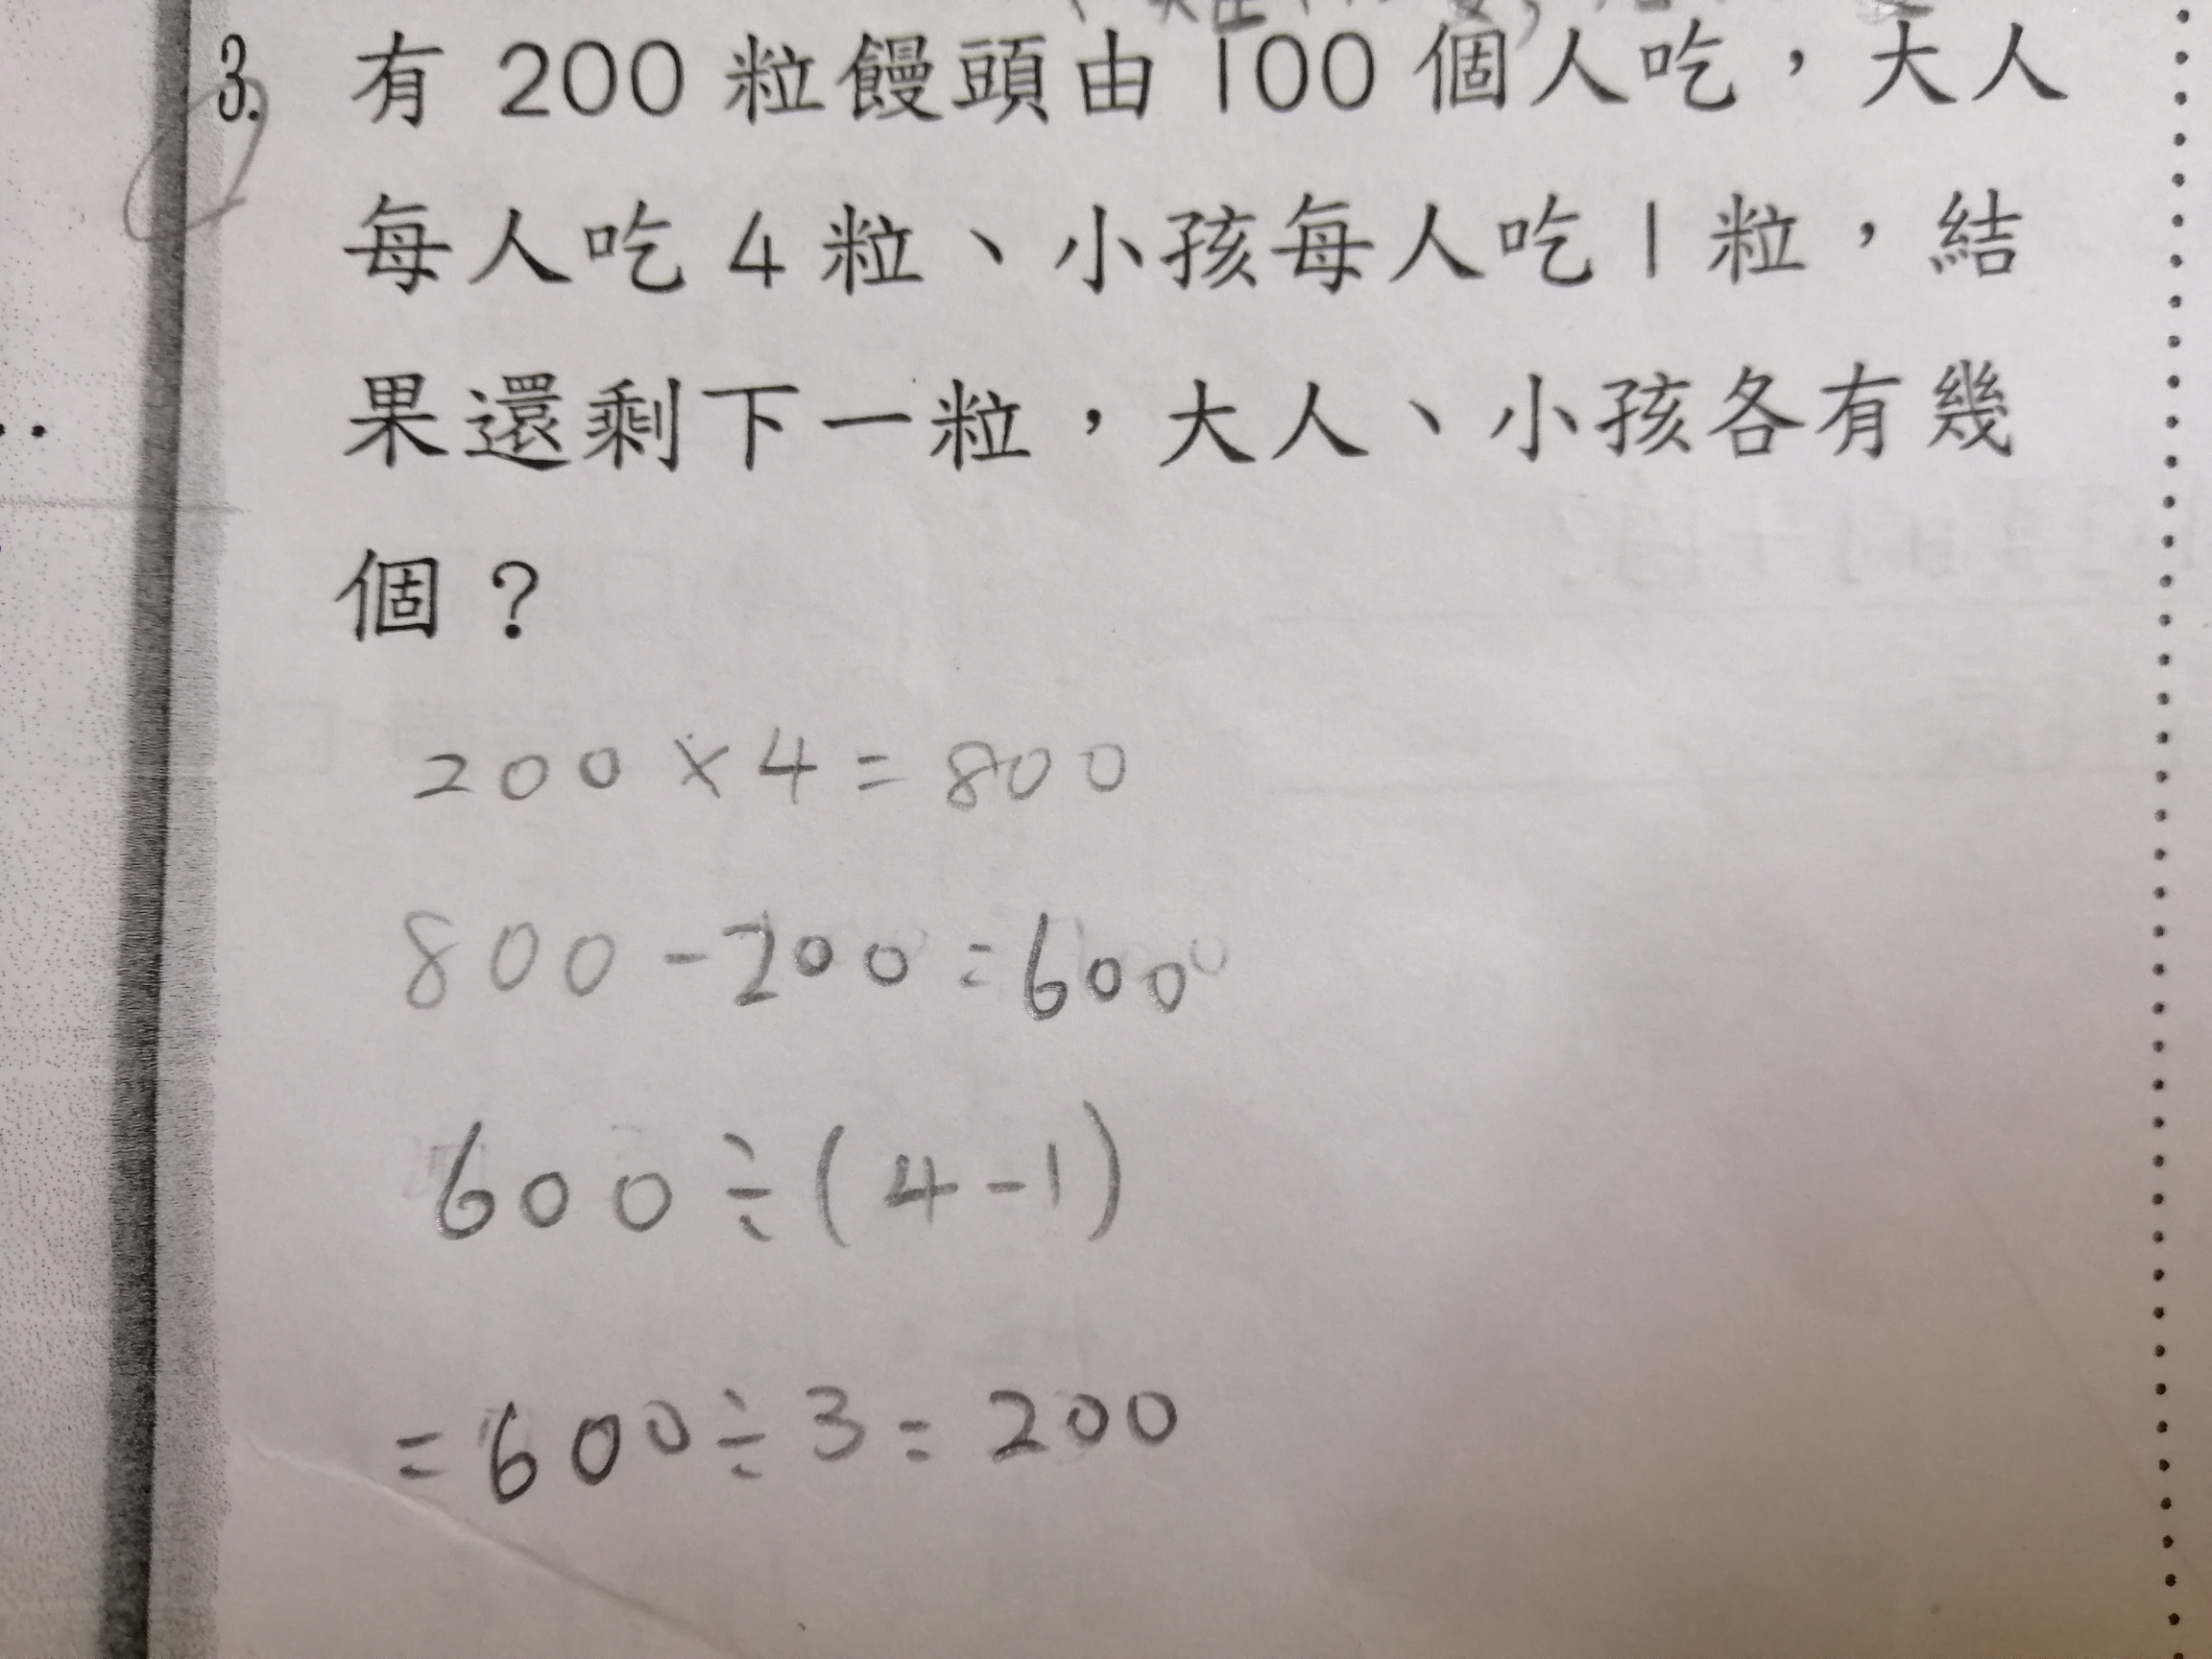 3. 有 200 粒饅頭由 100 個人吃，大人
每人吃 4 粒、小孩每人吃 1 粒，結
果還剩下一粒，大人、小孩各有幾
個？
200 × 4 = 800
800 - 200 = 600
600 ÷ ( 4 - 1 )
= 600 ÷ 3 = 200